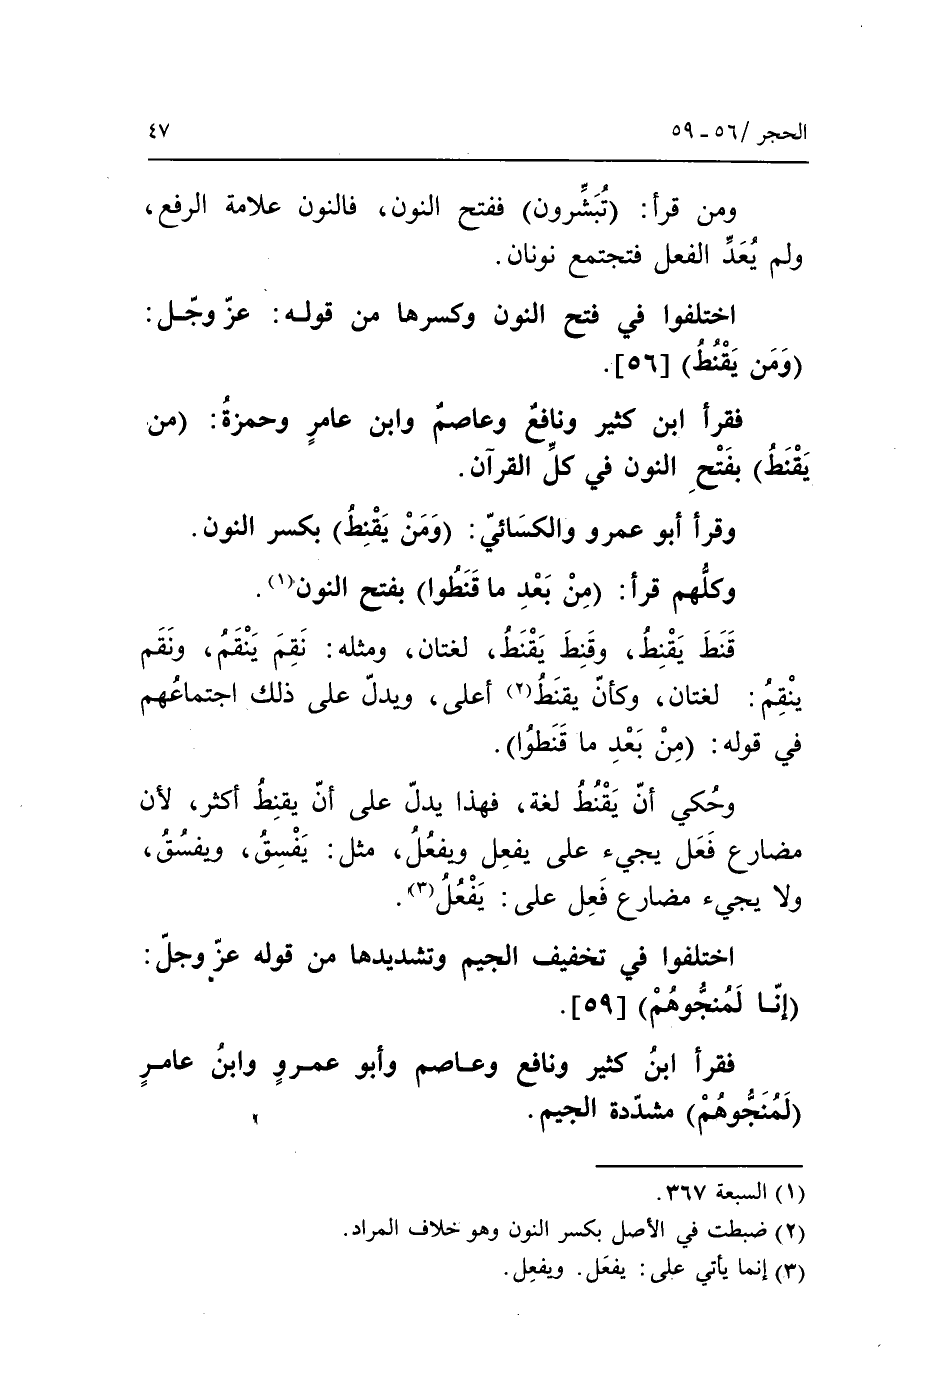 الحجر /٥٦ ـ ٥٩
٤٧
ومن قرأ: (تُبَشِّرون) ففتح النون، فالنون علامة الرفع،
ولم يُعَدِّ الفعل فتجتمع نونان.
اختلفوا في فتح النون وكسرها من قولـه: عزّ وجّـل:
(وَمَن يَقْنُطُ) [٥٦].
فقرأ ابن كثير ونافعٌ وعاصمٌ وابن عامرٍ وحمزةُ: (من
يَقْنَطُ) بفَتْحِ النون في كلِّ القرآن.
وقرأ أبو عمرو والكسَائيّ: (وَمَنْ يَقْنِطُ) بكسر النون.
وكلُّهم قرأ: (مِنْ بَعْدِ ما قَنَطُوا) بفتح النون(١).
قَنَطَ يَقْنِطُ، وقَنِطَ يَقْنَطُ، لغتان، ومثله: نَقِمَ يَنْقَمُ، ونَقَم
ينْقِمُ: لغتان، وكأنّ يقنَطُ(٢) أعلى، ويدلّ على ذلك اجتماعُهم
في قوله: (مِنْ بَعْدِ ما قَنَطوُا).
وحُكي أنّ يَقْنُطُ لغة، فهذا يدلّ على أنّ يقنِطُ أكثر، لأن
مضارع فَعَل يجيء على يفعِل ويفعُلُ، مثل: يَفْسِقُ، ويفسُقُ،
ولا يجيء مضارع فَعِل على: يَفْعُلُ(٣).
اختلفوا في تخفيف الجيم وتشديدها من قوله عزّ وجلّ:
(إنّـا لَمُنجُّوهُمْ) [٥٩].
فقرأ ابنُ كثير ونافع وعـاصم وأبو عمـروٍ وابنُ عامـرٍ
(لَمُنَجُّوهُمْ) مشدّدة الجيم.
(١) السبعة ٣٦٧.
(٢) ضبطت في الأصل بكسر النون وهو خلاف المراد.
(٣) إنما يأتي على: يفعَل. ويفعِل.